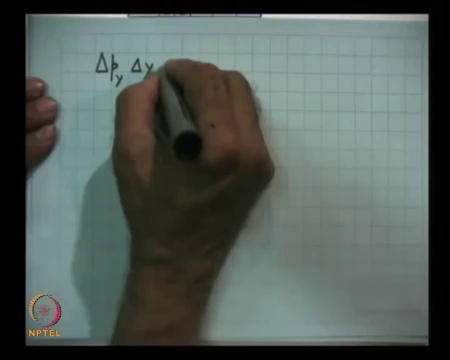 Δp_y Δy
NPTEL